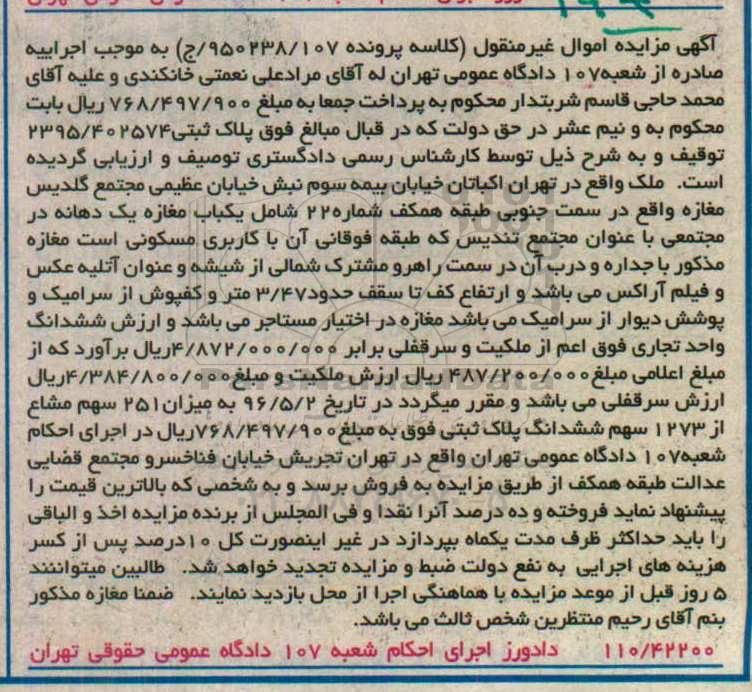 آگهی مزایده اموال غیرمنقول (کلاسه پرونده ۹۵۰۲۳۸/۱۰۷/ج) به موجب اجراییه
صادره از شعبه۱۰۷ دادگاه عمومی تهران له آقای مرادعلی نعمتی خانکندی و علیه آقای
محمد حاجی قاسم شربتدار محکوم به پرداخت جمعا به مبلغ ۷۶۸/۴۹۷/۹۰۰ ریال بابت
محکوم به و نیم عشر در حق دولت که در قبال مبالغ فوق پلاک ثبتی۲۳۹۵/۴۰۲۵۷۴
توقیف و به شرح ذیل توسط کارشناس رسمی دادگستری توصیف و ارزیابی گردیده
است. ملک واقع در تهران اکباتان خیابان بیمه سوم نبش خیابان عظیمی مجتمع گلدیس
مغازه واقع در سمت جنوبی طبقه همکف شماره۲۲ شامل یکباب مغازه یک دهانه در
مجتمعی با عنوان مجتمع تندیس که طبقه فوقانی آن با کاربری مسکونی است مغازه
مذکور با جداره و درب آن در سمت راهرو مشترک شمالی از شیشه و عنوان آتلیه عکس
و فیلم آراکس می باشد و ارتفاع کف تا سقف حدود۳/۴۷ متر و کفپوش از سرامیک و
پوشش دیوار از سرامیک می باشد مغازه در اختیار مستاجر می باشد و ارزش ششدانگ
واحد تجاری فوق اعم از ملکیت و سرقفلی برابر ۴/۸۷۲/۰۰۰/۰۰۰ریال برآورد که از
مبلغ اعلامی مبلغ۴۸۷/۲۰۰/۰۰۰ ریال ارزش ملکیت و مبلغ۴/۳۸۴/۸۰۰/۰۰۰ریال
ارزش سرقفلی می باشد و مقرر میگردد در تاریخ ۹۶/۵/۲ به میزان۲۵۱ سهم مشاع
از ۱۲۷۳ سهم ششدانگ پلاک ثبتی فوق به مبلغ۷۶۸/۴۹۷/۹۰۰ریال در اجرای احکام
شعبه۱۰۷ دادگاه عمومی تهران واقع در تهران تجریش خیابان فناخسرو مجتمع قضایی
عدالت طبقه همکف از طریق مزایده به فروش برسد و به شخصی که بالاترین قیمت را
پیشنهاد نماید فروخته و ده درصد آنرا نقدا و فی المجلس از برنده مزایده اخذ و الباقی
را باید حداکثر ظرف مدت یکماه بپردازد در غیر اینصورت کل ۱۰درصد پس از کسر
هزینه های اجرایی به نفع دولت ضبط و مزایده تجدید خواهد شد. طالبین میتواننند
۵ روز قبل از موعد مزایده با هماهنگی اجرا از محل بازدید نمایند. ضمنا مغازه مذکور
بنم آقای رحیم منتظرین شخص ثالث می باشد.
۱۱۰/۴۲۲۰۰ دادورز اجرای احکام شعبه ۱۰۷ دادگاه عمومی حقوقی تهران